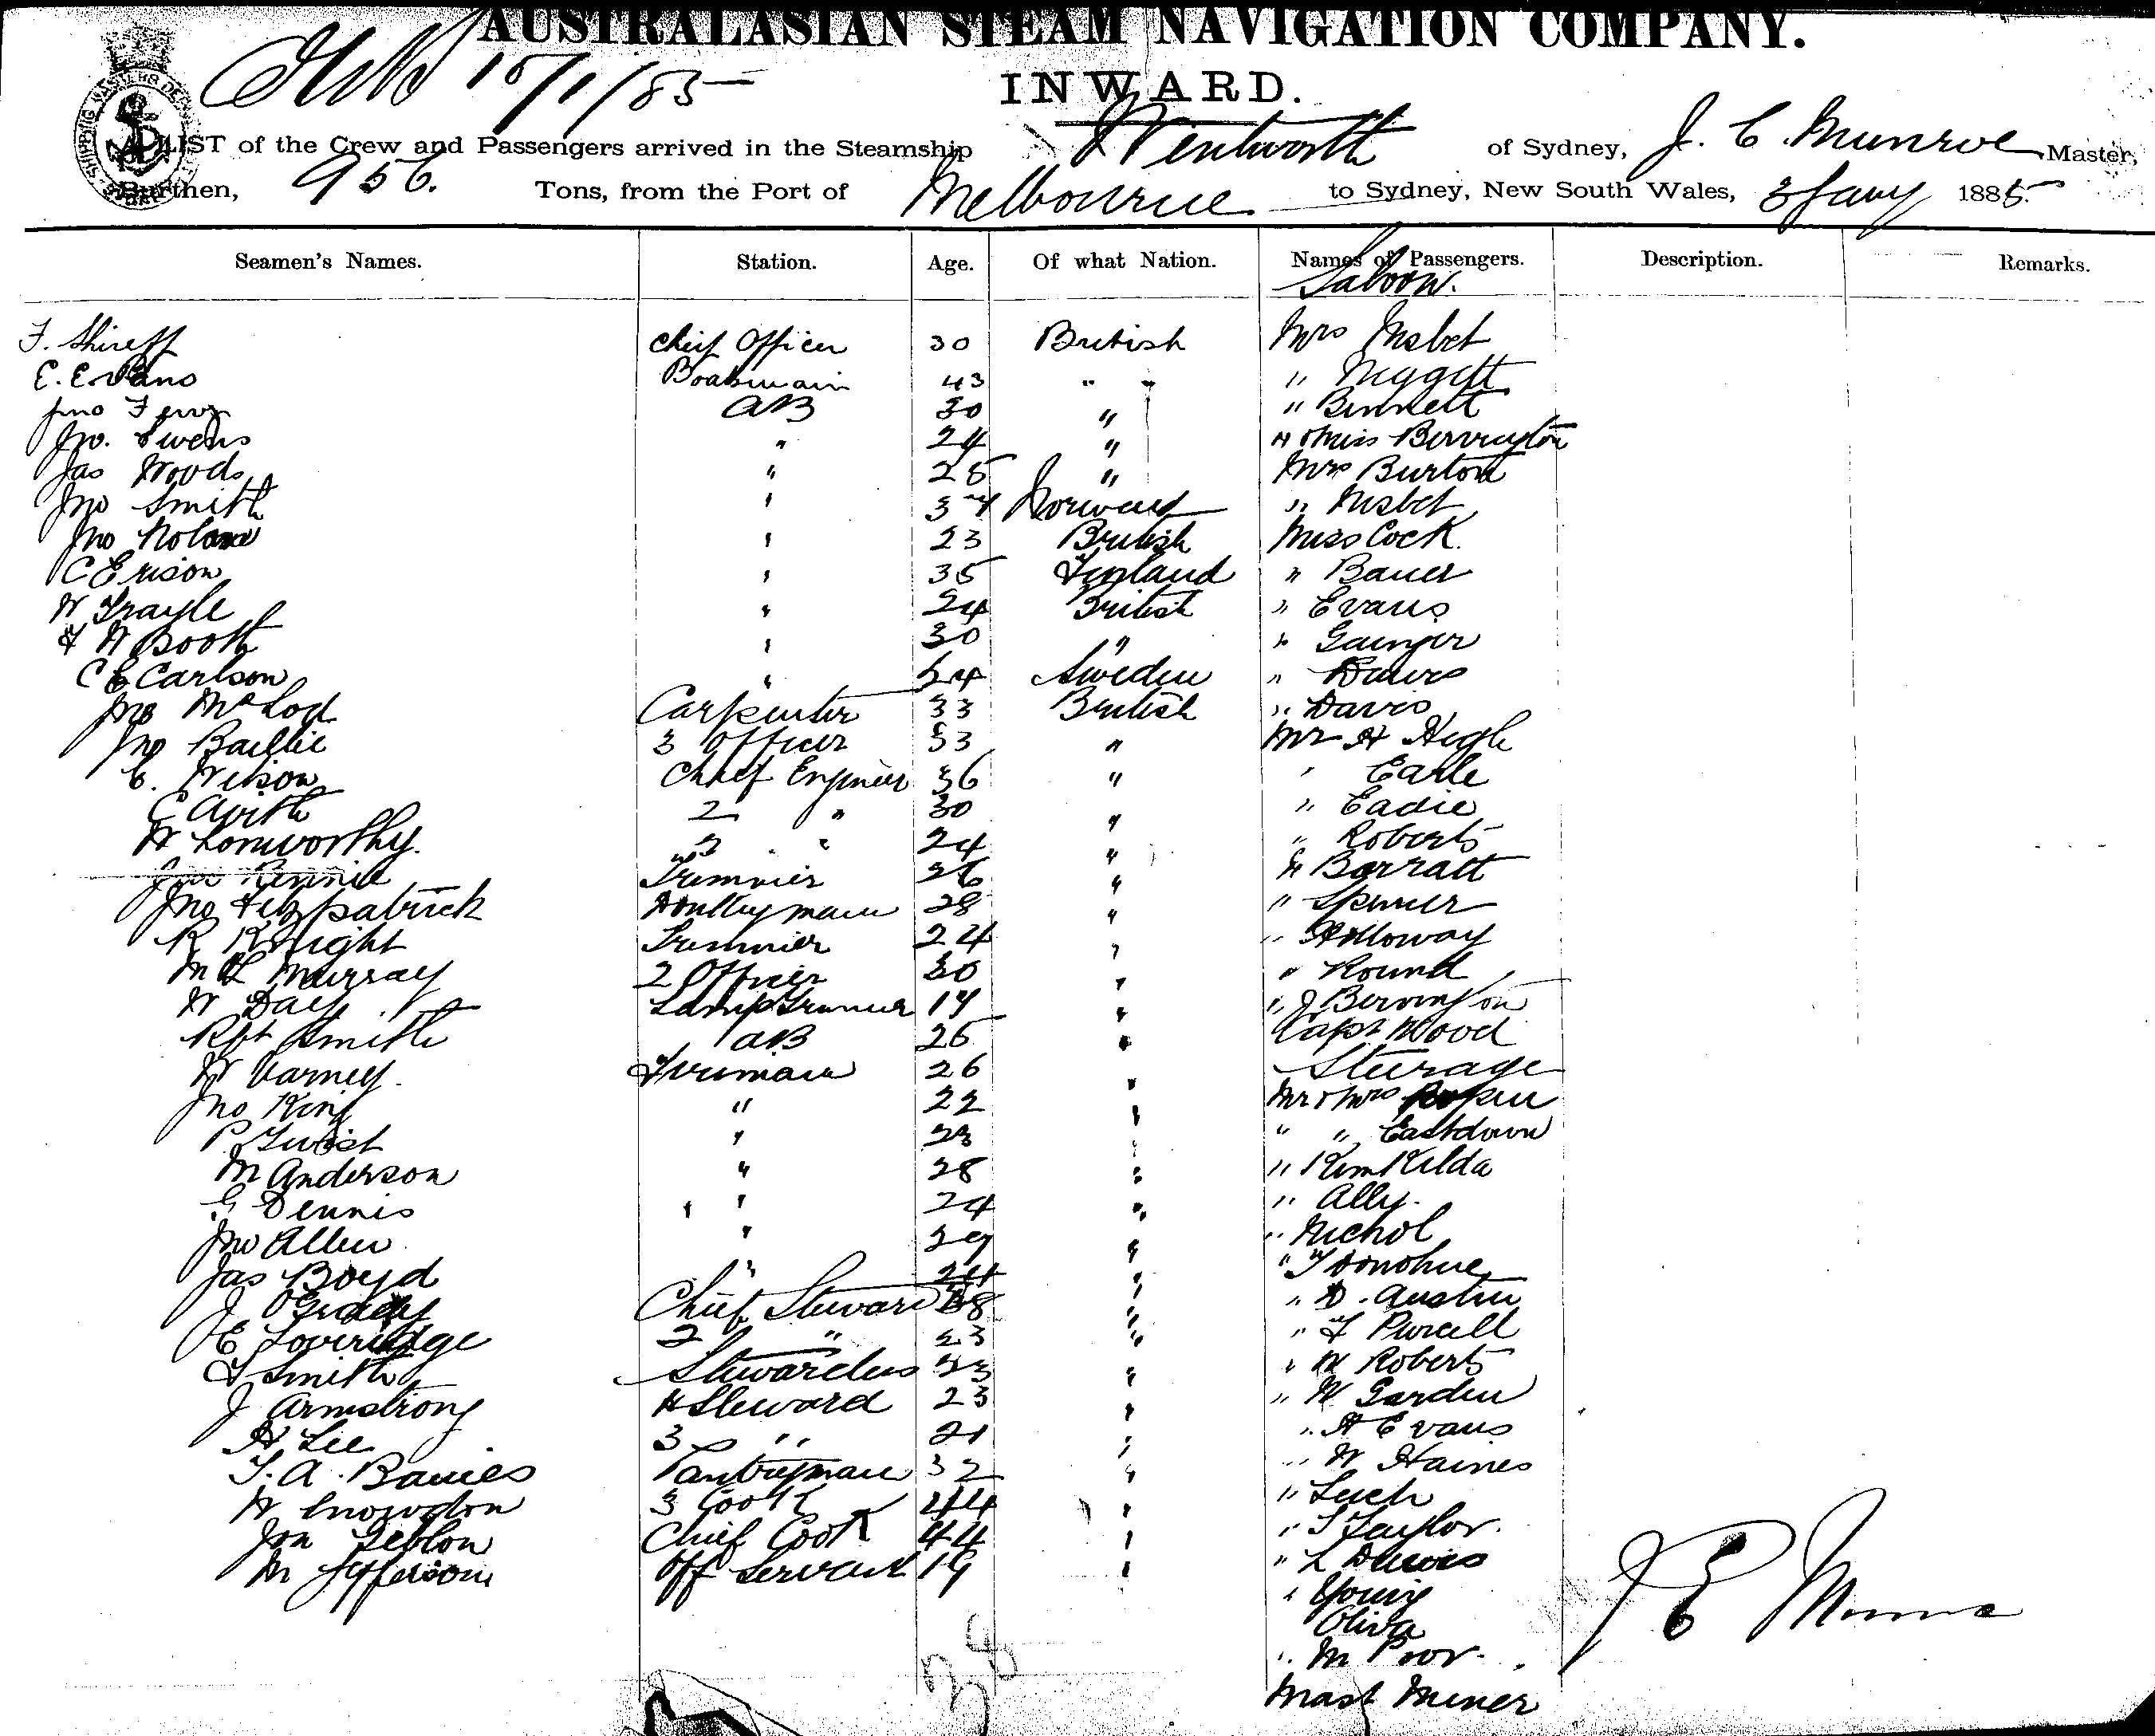 AUSTRALASIAN STEAM NAVIGATION COMPANY.
15/1/85
INWARD.
A LIST of the Crew and Passengers arrived in the Steamship Wentworth of Sydney, J. C. Munroe Master,
Burthen, 956. Tons, from the Port of Melbourne to Sydney, New South Wales, 3 Jany 1885.
Seamen's Names. Station. Age. Of what Nation. Names of Passengers. Description. Remarks.
Saloon.
F. Shireff Chief Officer 30 British Mrs Nisbet
E. Evans Boatswain 43 " " "
Jno AB 30 " " Bennett
Jno. Owens " 24 " " & Miss Berrington
Jas Woods " 25 " Mrs Burton
Jno Smith " Norway " Nisbet
Jno Nolan " 23 British Miss Cock.
C Erison " 35 Finland " Bauer
W Grayle " 24 British " Evans
W Booth " 30 " "
C E Carlson " 24 Sweden " Davis
Jno McLod Carpenter 33 British " Davis
Jno Baillie 3 Officer 53 " Mr H High
C. Wilson Chief Engineer 36 " " Earle
2 " 30 " " Eadie
H Lomworthy. 3 " 24 " " Roberts
Jno Rennie Trimmer 26 " " Barratt
Jno Fitzpatrick Donkeyman 28 " " Spencer
R Knight Trimmer 24 " " Holloway
M L Murray 2 Officer 30 " " Round
W Day Lamp Trimmer 17 " " J Berrington
Rbt Smith AB 25 " Capt Wood
W Varney. Fireman 26 " Steerage
Jno King " 22 " Mr & Mrs
P Twist " 23 " " " Eastdown
M Anderson " 28 " " Kilda
G Dennis " 24 " " Ally.
Jno Allen " 29 " " Nichol
Jas Boyd " 24 " " T Donohue
J Chief Steward 38 " " D. Austin
E Loveridge 2 " 23 " " F Purcell
Smith Stewardess 33 " " W Roberts
J Armstrong Steward 23 " " W Garden
H Lee 3 " 21 " " H Evans
T. A. Bavies Pantryman 32 " " W Haines
W Snowdon 3 Cook 24 " " Luch
Jon Chief Cook 44 " " T Taylor.
M Jefferson Off Servant 19 " " L Davis
" Young
Oliva
" M Poor.
Mast Miner
J C Munro
38